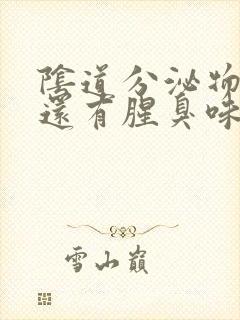 陰道分泌物
還有腥臭味
雪山巔